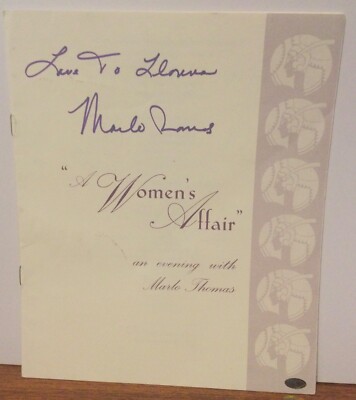 Love To Llorena
Marlo Thomas
"A Women's
Affair"
an evening with
Marlo Thomas